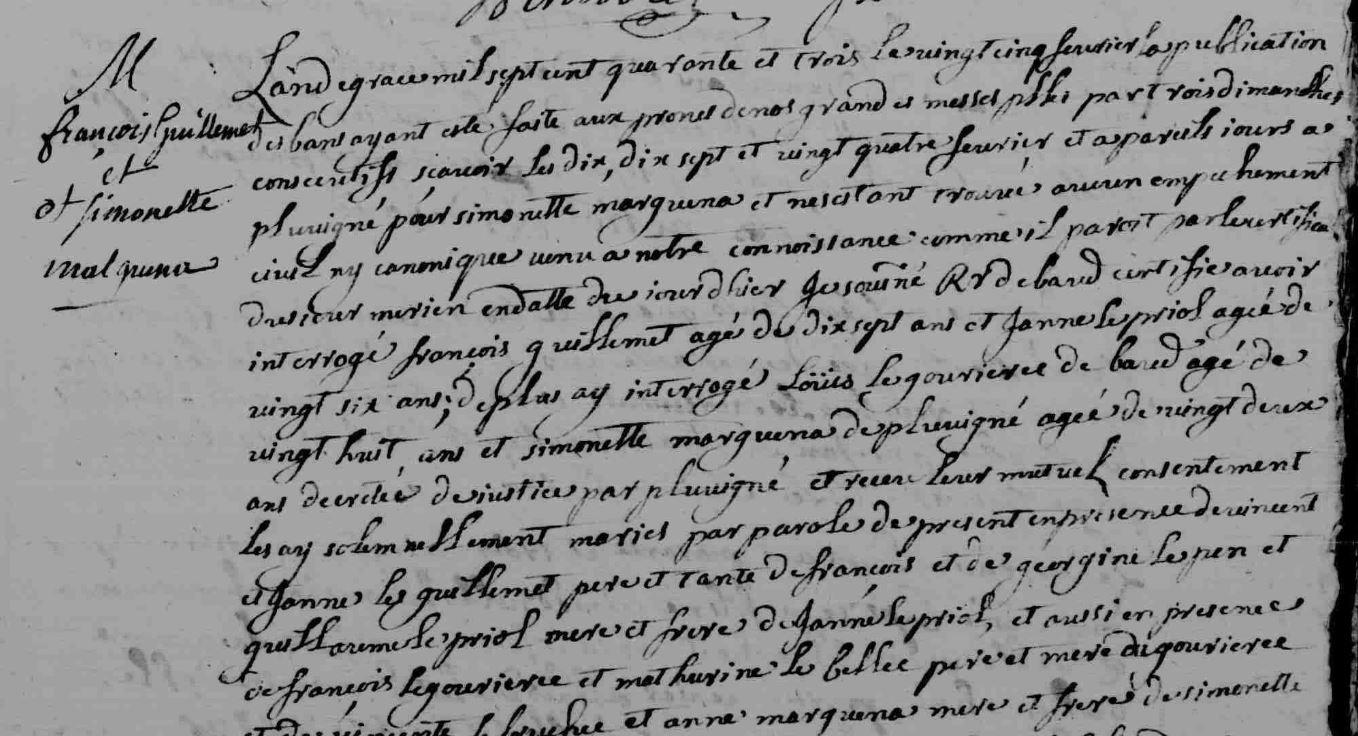 M
françois Guillemet
et
et simonette
marquena
L'an de grace mil sept cent quarante et trois le vingt cinq feuvrier la publication
des bans ayant esté faite aux prones de nos grandes messes plles par trois dimanches
consecutifs sçavoir les dix, dix sept et vingt quatre feuvrier et a pareils iours a
pluvigné pour simonette marquena et ne s'estant trouvé aucun empechement
civil ny canonique venu a notre connoissance comme il paroit par le certificat
du sieur merien en datte du iour d'hier Je sousiné Rr de baud certifie avoir
interrogé françois guillemet agé de dix sept ans et Janne le priol agée de
vingt six ans; de plus ay interrogé Loüis le gourierec de baud agé de
vingt huit ans et simonette marquena de pluvigné agée de vingt deux
ans decretée de iustice par pluvigné et receu leur mutuel consentement
les ay solemnellement mariés par parole de present en presence de vincent
et Janne les guillemet pere et tante de françois et de georgine le pen et
guillaume le priol mere et frere de Janne le priol, et aussi en presence
de françois le gourierec et mathurine le bellec pere et mere du gourierec
et de vincente et anne marquena mere et frere de simonette